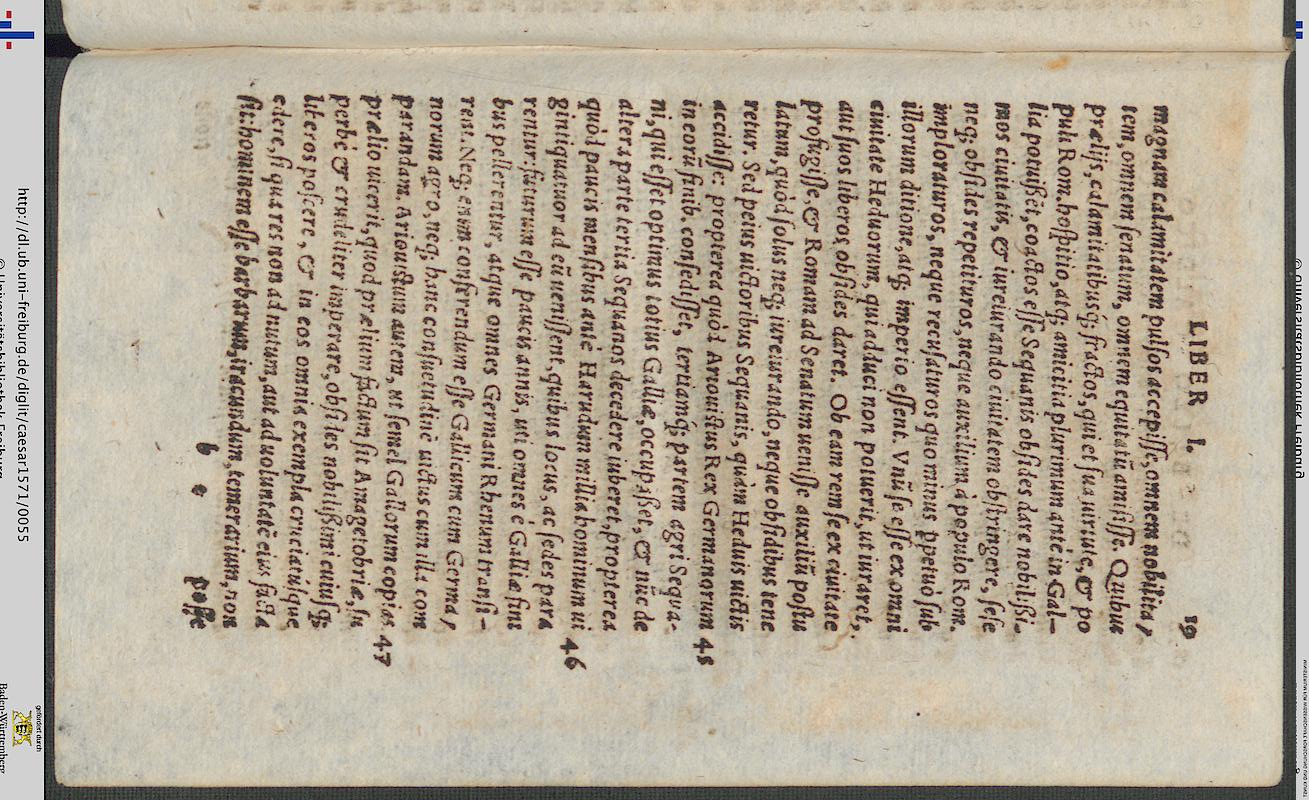 LIBER I. 19
magnam calamitatem pulsos accepisse, omnem nobilita,
tem, omnem senatum, omnem equitatū amisisse. Quibus
prælijs, calamitatibusq; fractos, qui et sua uirtute, & po
puli Rom. hospitio, atq; amicitia plurimum antè in Gal-
lia potuissēt, coactos esse Sequanis obsides dare nobilissi-
mos ciuitatis, & iureiurando ciuitatem obstringere, sese
neq; obsides repetituros, neque auxilium à populo Rom.
imploraturos, neque recusaturos quo minus ppetuò sub
illorum ditione, atq; imperio essent. Vnū se esse ex omni
ciuitate Heduorum, qui adduci non potuerit, ut iuraret,
aut suos liberos obsides daret. Ob eam rem se ex ciuitate
profugisse, & Romam ad Senatum uenisse auxiliū postu
latum, quòd solus neq; iureiurando, neque obsidibus tene
retur. Sed peius uictoribus Sequanis, quàm Heduis uictis
accidisse: propterea quòd Ariouistus Rex Germanorum 45
in eorū finib. consedisset, tertiamq; partem agri Sequa-
ni, qui esset optimus totius Galliæ, occupasset, & nūc de
altera parte tertia Sequanos decedere iuberet, propterea
quòd paucis mensibus antè Harudum millia hominum ui
gintiquatuor ad eū uenissent, quibus locus, ac sedes para 46
rentur: futurum esse paucis annis, uti omnes è Galliæ fini
bus pellerentur, atque omnes Germani Rhenum transi-
rent. Neq; enim conferendum esse Gallicum cum Germa,
norum agro, neq; hanc consuetudinē uictus cum illa com
parandam. Ariouistum autem, ut semel Gallorum copias 47
prælio uicerit, quod prælium factum sit Amagetobriæ, su
perbè & crudeliter imperare, obsides nobilissimi cuiusq;
liberos poscere, & in eos omnia exempla cruciatúsque
edere, si qua res non ad nutum, aut ad uoluntatē eius facta
sit: hominem esse barbarum, iracundum, temerarium, non
b e posse
http://dl.ub.uni-freiburg.de/diglit/caesar1571/0055
© Universitätsbibliothek Freiburg
gefördert durch
Baden-Württemberg